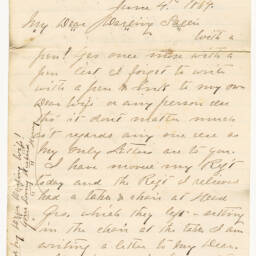 June 4th 1864.
My Dear Darling
With a
pen! Yes once more with a
pen lest I forget to write
with a pen & ink to my own
Dear Wife or any person else
tho' it dont matter much
as regards any one else as
my only Letters are to you.
I have moved my Regt
today and the Regt I relieved
had a table & chair at Head
Qrs, which they left - sitting
in the chair at the table I am
writing a letter to my Dear.